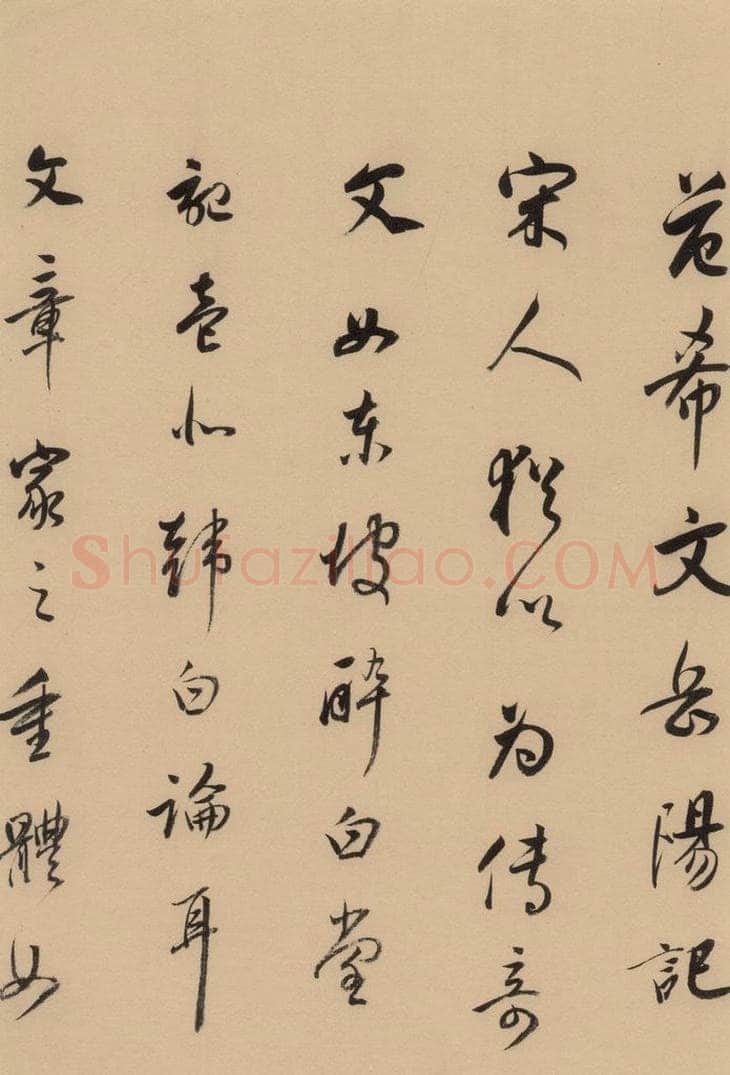 范希文岳陽記
宋人猶以為傳奇
文如東坡醉白堂
記壹似韓白論耳
文章家之重體如
Shufaziliao.COM